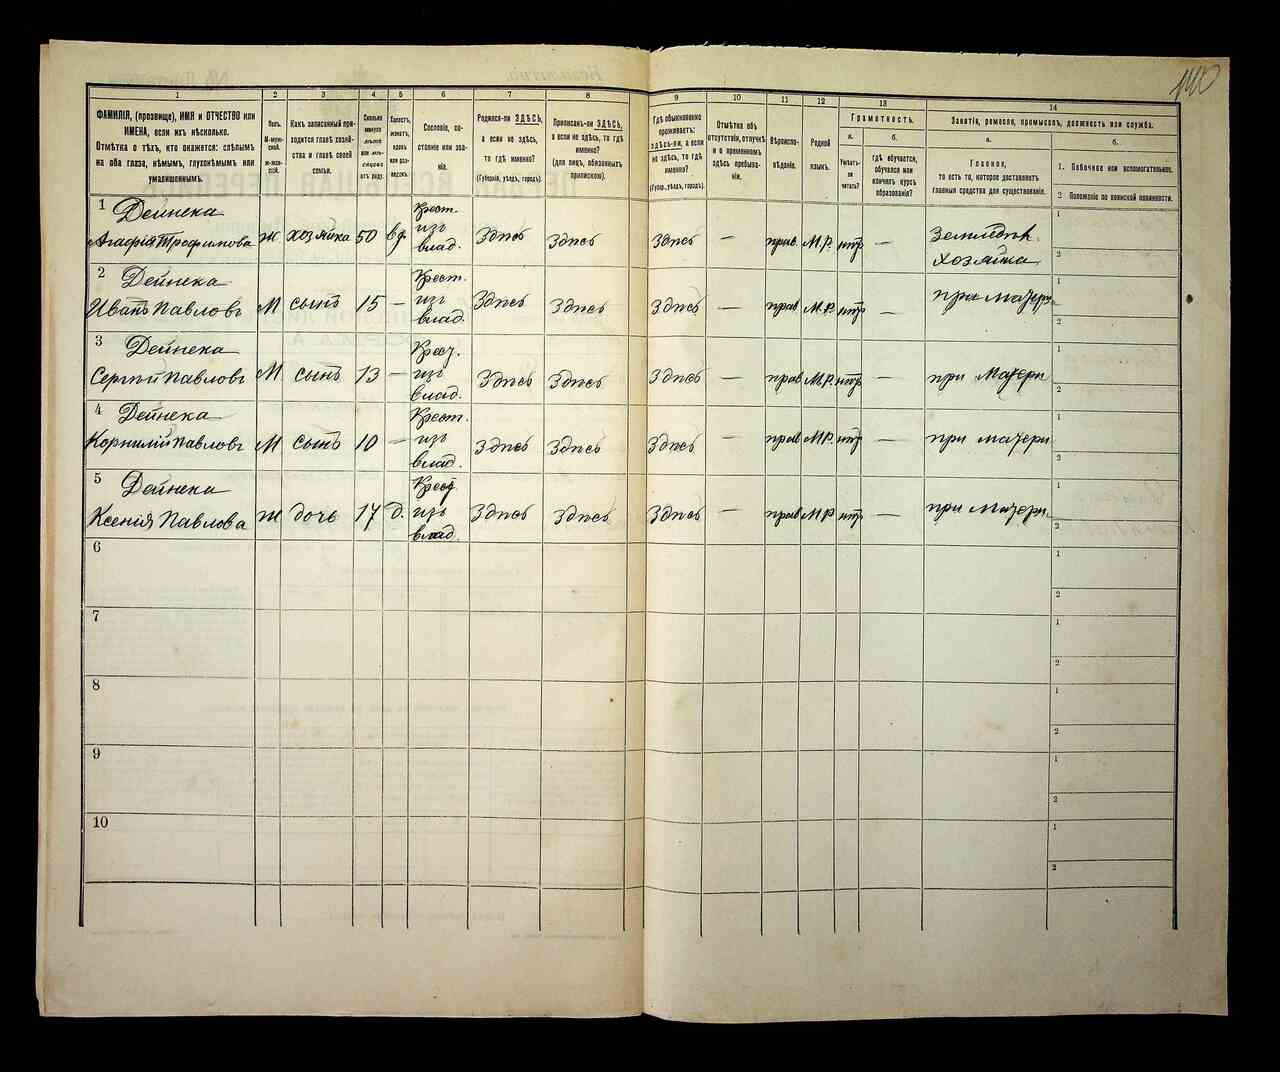 1
2
3
4
5
6
7
8
9
10
11
12
13
14
ФАМИЛІЯ, (прозвище), ИМЯ и ОТЧЕСТВО или
ИМЕНА, если ихъ нѣсколько.
Отмѣтка о тѣхъ, кто окажется: слѣпымъ
на оба глаза, нѣмымъ, глухонѣмымъ или
умалишеннымъ.
Полъ.
М-муж-
ской.
ж-жен-
ской.
Какъ записанный при-
ходится главѣ хозяй-
ства и главѣ своей
семьи.
Сколько
минуло
лѣтъ
или мѣ-
сяцевъ
отъ роду.
Холостъ,
женатъ,
вдовъ
или раз-
веденъ.
Сословіе, со-
стояніе или зва-
ніе.
Родился-ли ЗДѢСЬ,
а если не здѣсь,
то гдѣ именно?
(Губернія, уѣздъ, городъ).
Приписанъ-ли ЗДѢСЬ,
а если не здѣсь, то гдѣ
именно?
(для лицъ, обязанныхъ
припиской).
Гдѣ обыкновенно
проживаетъ:
здѣсь-ли, а если
не здѣсь, то гдѣ
именно?
(Губер.,уѣздъ, городъ).
Отмѣтка объ
отсутствіи, отлучкѣ
и о временномъ
здѣсь пребыва-
ніи.
Вѣроиспо-
вѣданіе.
Родной
языкъ.
Грамотность.
а.
Умѣетъ-
ли
читать?
б.
гдѣ обучается,
обучался или
кончилъ курсъ
образованія?
Занятіе, ремесло, промыселъ, должность или служба.
а.
Главное,
то есть то, которое доставляетъ
главныя средства для существованія.
б.
1. Побочное или вспомогательное.
2 Положеніе по воинской повинности.
1 Дейнека Крест.
Агафія Трофимова ж хозяйка 50 вд. изъ влад. Здѣсь Здѣсь Здѣсь — прав. М.Р. нѣтъ — Земледѣл. 1
хозяйка 2
2 Дейнека Крест.
Иванъ Павловъ М сынъ 15 — изъ влад. Здѣсь Здѣсь Здѣсь — прав М.Р. нѣтъ — при матери 1
2
3 Дейнека Крест.
Сергѣй Павловъ М сынъ 13 — изъ влад. Здѣсь Здѣсь Здѣсь — прав М.Р. нѣтъ — при матери 1
2
4 Дейнека Крест.
Корнилій Павловъ М сынъ 10 — изъ влад. Здѣсь Здѣсь Здѣсь — прав М.Р. нѣтъ — при матери 1
2
5 Дейнека Крест
Ксенія Павлова ж дочь 17 д. изъ влад. Здѣсь Здѣсь Здѣсь — прав М.Р. нѣтъ — при матери 1
2
6 1
2
7 1
2
8 1
2
9 1
2
10 1
2